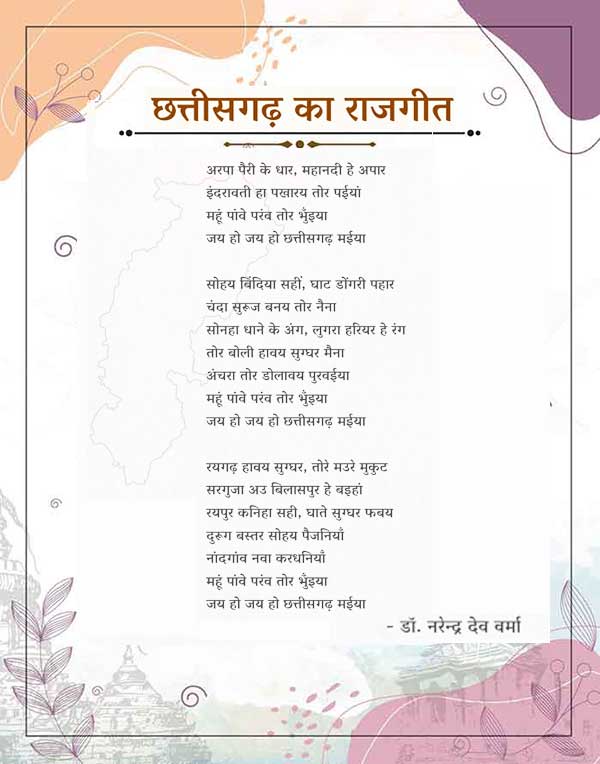 छत्तीसगढ़ का राजगीत
अरपा पैरी के धार, महानदी हे अपार
इंदरावती हा पखारय तोर पईयां
महूं पांवे परंव तोर भुँइया
जय हो जय हो छत्तीसगढ़ मईया
सोहय बिंदिया सहीं, घाट डोंगरी पहार
चंदा सुरूज बनय तोर नैना
सोनहा धाने के अंग, लुगरा हरियर हे रंग
तोर बोली हावय सुग्घर मैना
अंचरा तोर डोलावय पुरवईया
महूं पांवे परंव तोर भुँइया
जय हो जय हो छत्तीसगढ़ मईया
रयगढ़ हावय सुग्घर, तोरे मउरे मुकुट
सरगुजा अउ बिलासपुर हे बइहां
रयपुर कनिहा सही, घाते सुग्घर फबय
दुरूग बस्तर सोहय पैजनियाँ
नांदगांव नवा करधनियाँ
महूं पांवे परंव तोर भुँइया
जय हो जय हो छत्तीसगढ़ मईया
- डॉ. नरेन्द्र देव वर्मा